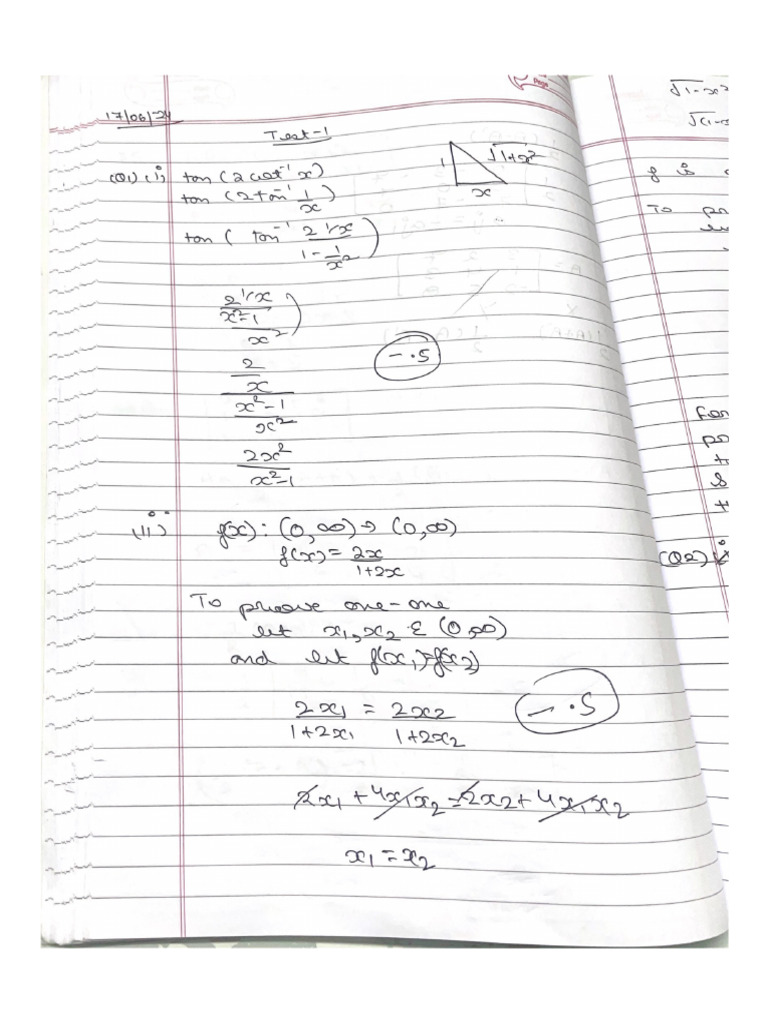 Page
17/06/24
Test-1
(Q1) (i) tan(2 cot⁻¹ x)
1 √1+x²
x
tan(2 tan⁻¹ 1/x)
tan( tan⁻¹ (2 1/x)/(1 - 1/x²))
(2 1/x)/((x²-1)/x²))
(2/x)/((x²-1)/x²)
- .5
2x²/(x²-1)
(ii) f(x) : (0, ∞) → (0, ∞)
f(x) = 2x/(1+2x)
To proove one-one
let x₁, x₂ ε (0, ∞)
and let f(x₁)=f(x₂)
2x₁/(1+2x₁) = 2x₂/(1+2x₂)
- .5
2x₁ + 4x₁x₂ = 2x₂ + 4x₁x₂
x₁ = x₂
√1-x²
f is
To
(Q2) i